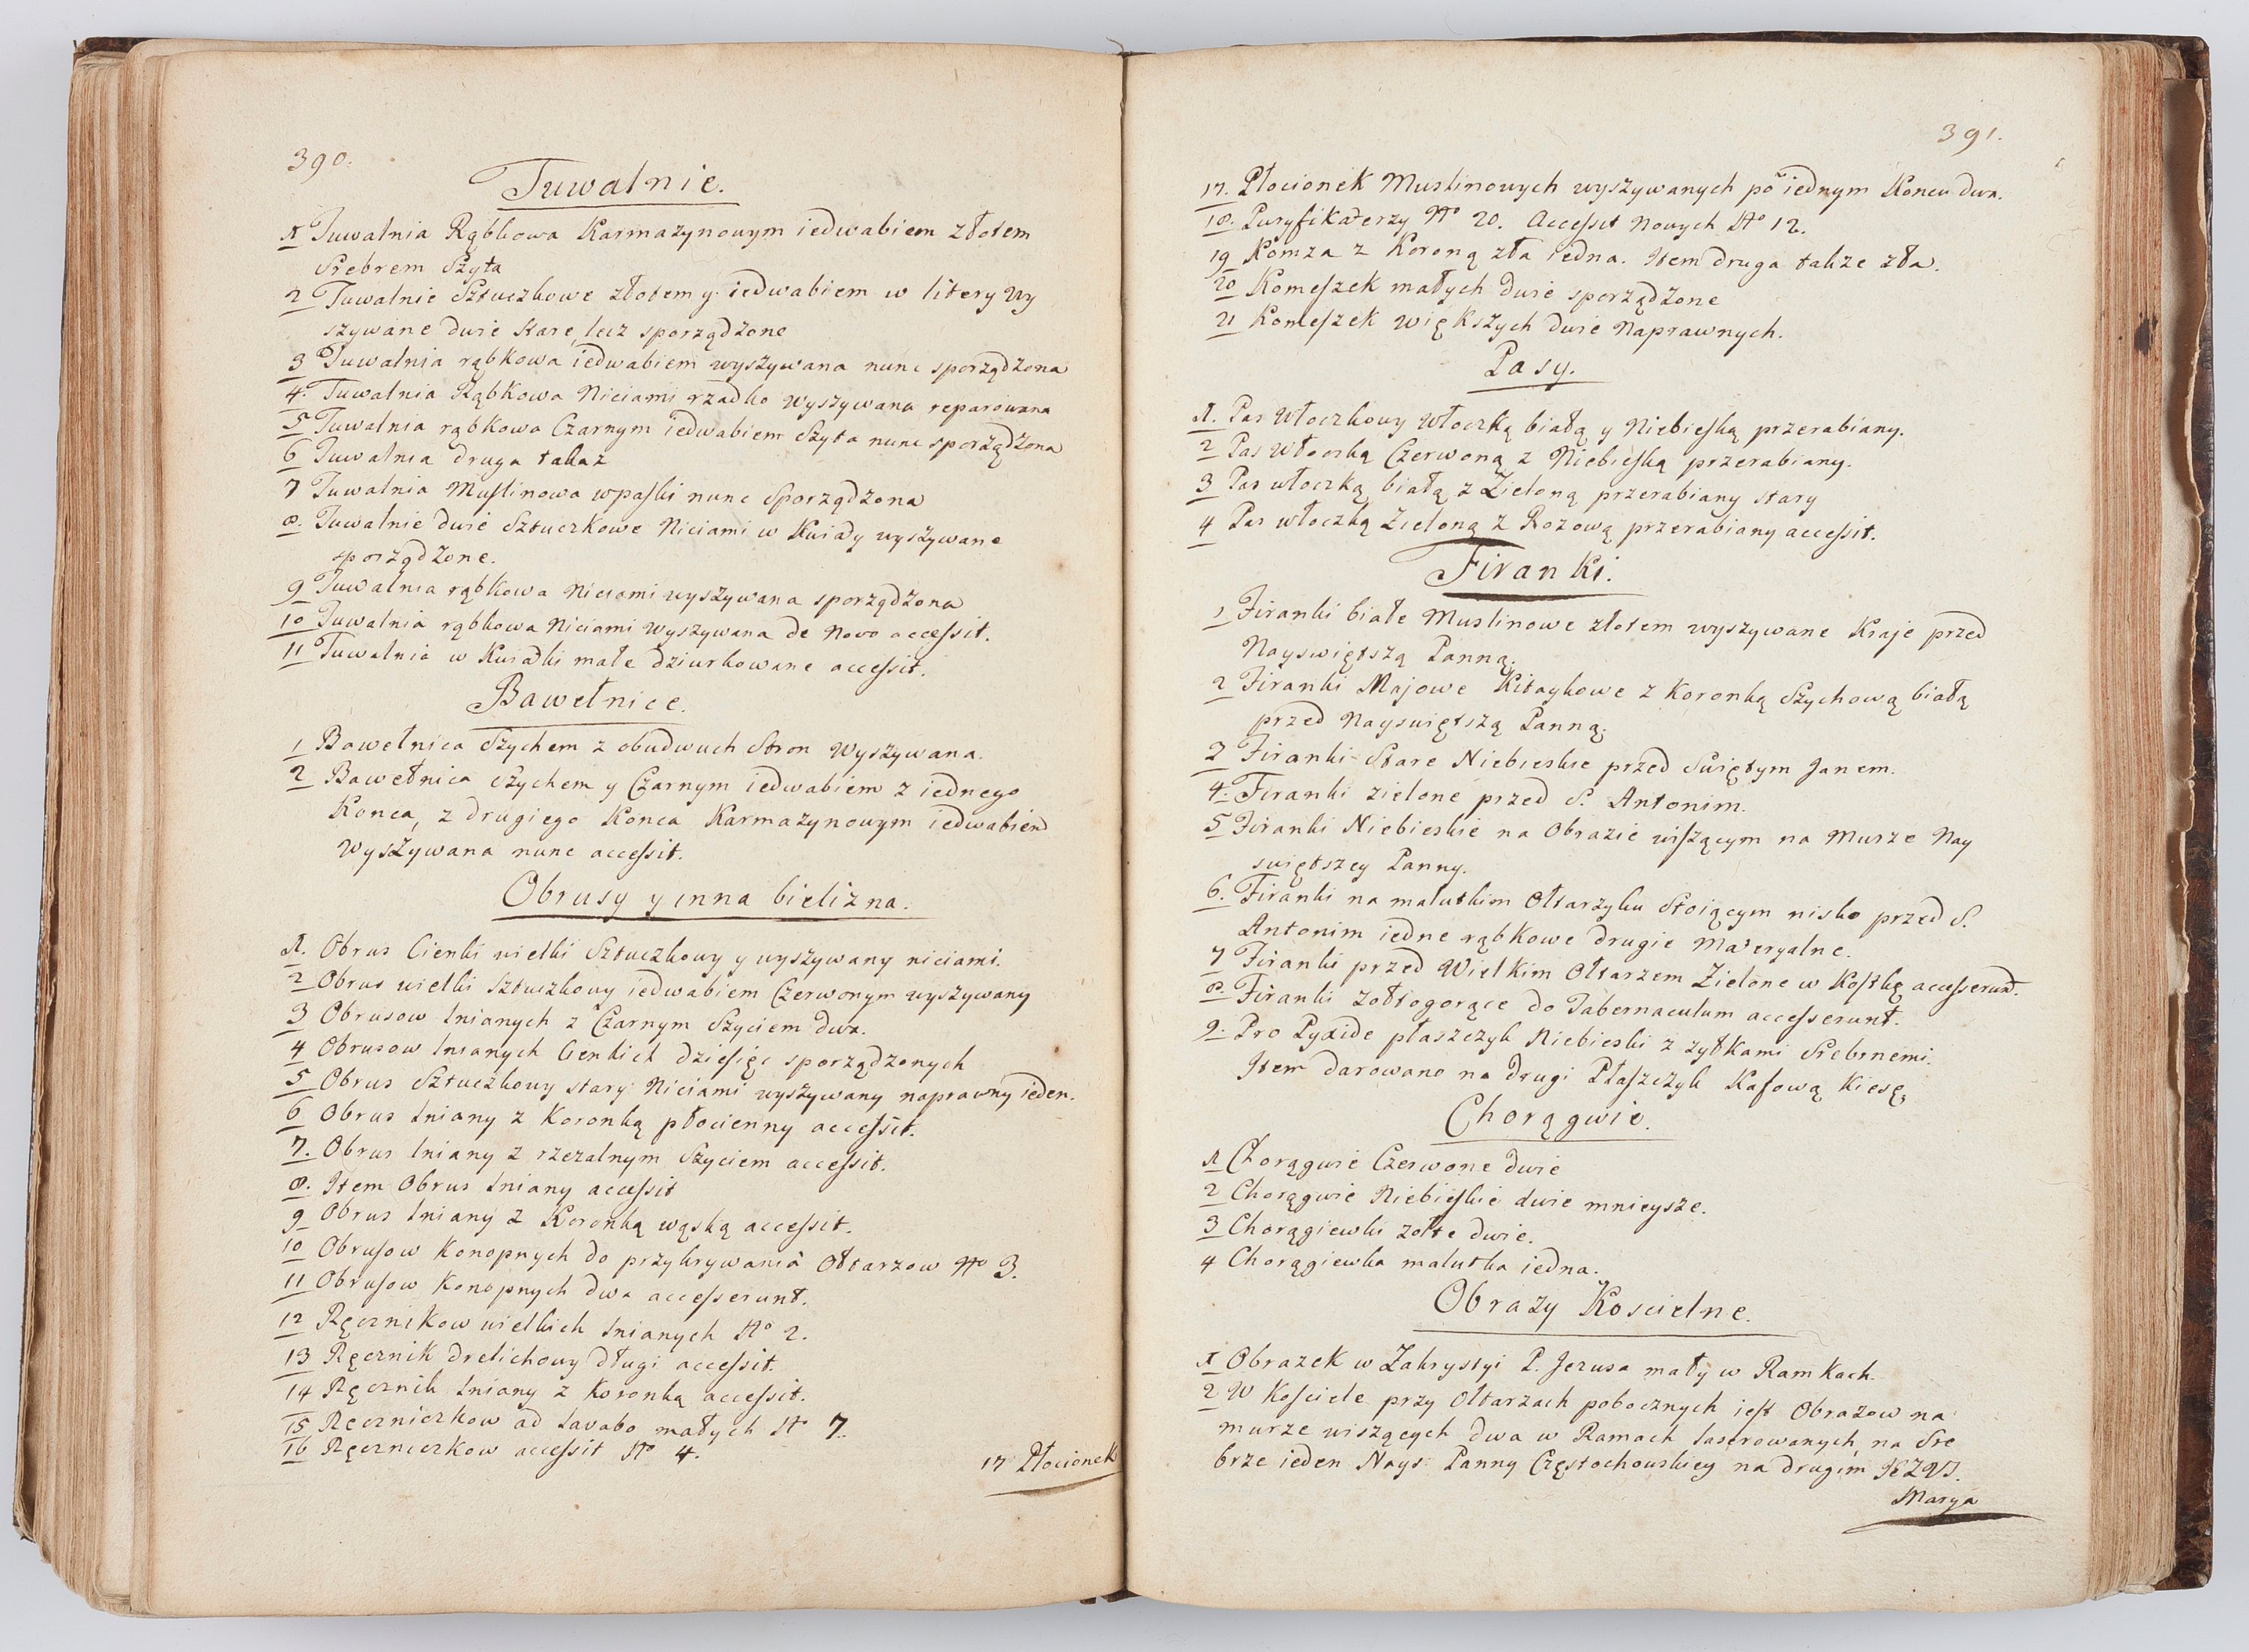 390.
Tuwalnie.
1 Tuwalnia Rąbkowa Karmazynowym iedwabiem złotem
Srebrem Szyta
2 Tuwalnie Sztuczkowe złotem y iedwabiem w litery wy
szywane dwie stare, lecz sporządzone
3 Tuwalnia rąbkowa iedwabiem wyszywana nunc sporządzona
4. Tuwalnia Rąbkowa Niciami rzadko wyszywana reparowana
5 Tuwalnia rąbkowa Czarnym iedwabiem Szyta nunc sporządzona
6 Tuwalnia druga takaż
7 Tuwalnia Muslinowa w paski nunc Sporządzona
8. Tuwalnie dwie Sztuczkowe Niciami w Kwiaty wyszywane
sporządzone.
9 Tuwalnia rąbkowa Niciami wyszywana sporządzona
10 Tuwalnia rąbkowa Niciami wyszywana de Novo accessit.
11 Tuwalnia w Kwiatki małe dziurkowane accessit.
Bawełnice.
1 Bawełnica Szychem z obudwuch Stron wyszywana.
2 Bawełnica szychem y Czarnym iedwabiem z iednego
Konca, z drugiego Konca Karmazynowym iedwabiem
wyszywana nunc accessit.
Obrusy y inna bielizna.
1. Obrus Cienki wielki Sztuczkowy y wyszywany niciami.
2 Obrus wielki sztuczkowy iedwabiem Czerwonym wyszywany
3 Obrusow lnianych z Czarnym Szyciem dwa.
4 Obrusow lnianych Cienkich dziesięc sporządzonych
5 Obrus Sztuczkowy stary Niciami wyszywany naprawny ieden.
6 Obrus lniany z Koronką płocienny accessit.
7. Obrus lniany z rzezalnym Szyciem accessit.
8. Item Obrus lniany accessit
9 Obrus lniany z Koronką wąską accessit.
10 Obrusow Konopnych do przykrywania Ołtarzow No 3.
11 Obrusow Konopnych dwa accesserunt.
12 Ręcznikow wielkich lnianych No 2.
13 Ręcznik drelichowy długi accessit.
14 Ręcznik lniany z koronką accessit.
15 Ręczniczkow ad lavabo małych No 7.
16 Ręczniczkow accessit No 4.
17 Płocionek
391.
17. Płocionek Muslinowych wyszywanych po iednym Koncu dwa.
18. Puryfikaterzy No 20. Accessit Nowych No 12.
19 Komza z Koroną zła iedna. Item druga także zła.
20 Komeszek małych dwie sporządzone
21 Komeszek większych dwie Naprawnych.
Pasy.
1. Pas Włoczkowy włoczką białą y Niebieską przerabiany.
2 Pas włoczką Czerwoną z Niebieską przerabiany.
3 Pas włoczką białą z Zieloną przerabiany stary
4 Pas włoczką Zieloną z Rozową przerabiany accessit.
Firanki.
1 Firanki białe Muslinowe złotem wyszywane Kraje przed
Nayswiętszą Panną.
2 Firanki Majowe Kitaykowe z koronką Szychową białą
przed Nayswiętszą Panną.
3 Firanki Stare Niebieskie przed Swiętym Janem.
4. Firanki zielone przed S. Antonim.
5 Firanki Niebieskie na Obrazie wiszącym na Murze Nay
swiętszey Panny.
6. Firanki na malutkim Ołtarzyku Stoiącym nisko przed S.
Antonim iedne rąbkowe drugie Materyalne.
7 Firanki przed Wielkim Ołtarzem Zielone w Kostkę accesserunt.
8. Firanki zołtogorące do Tabernaculum accesserunt.
9. Pro Pyxide płaszczyk Niebieski z zytkami Srebrnemi.
Item darowano na drugi Płaszczyk Kafową Kiesę.
Chorągwie.
1 Chorągwie Czerwone dwie
2 Chorągwie Niebieskie dwie mnieysze.
3 Chorągiewki zołte dwie.
4 Chorągiewka malutka iedna.
Obrazy Koscielne.
1 Obrazek w Zakrystyi P. Jezusa mały w Ramkach.
2 W Kosciele przy Ołtarzach pobocznych iest Obrazow na
murze wiszących dwa w Ramach laserowanych na Sre
brze ieden Nays: Panny Częstochowskiey na drugim JEZUS.
Marya